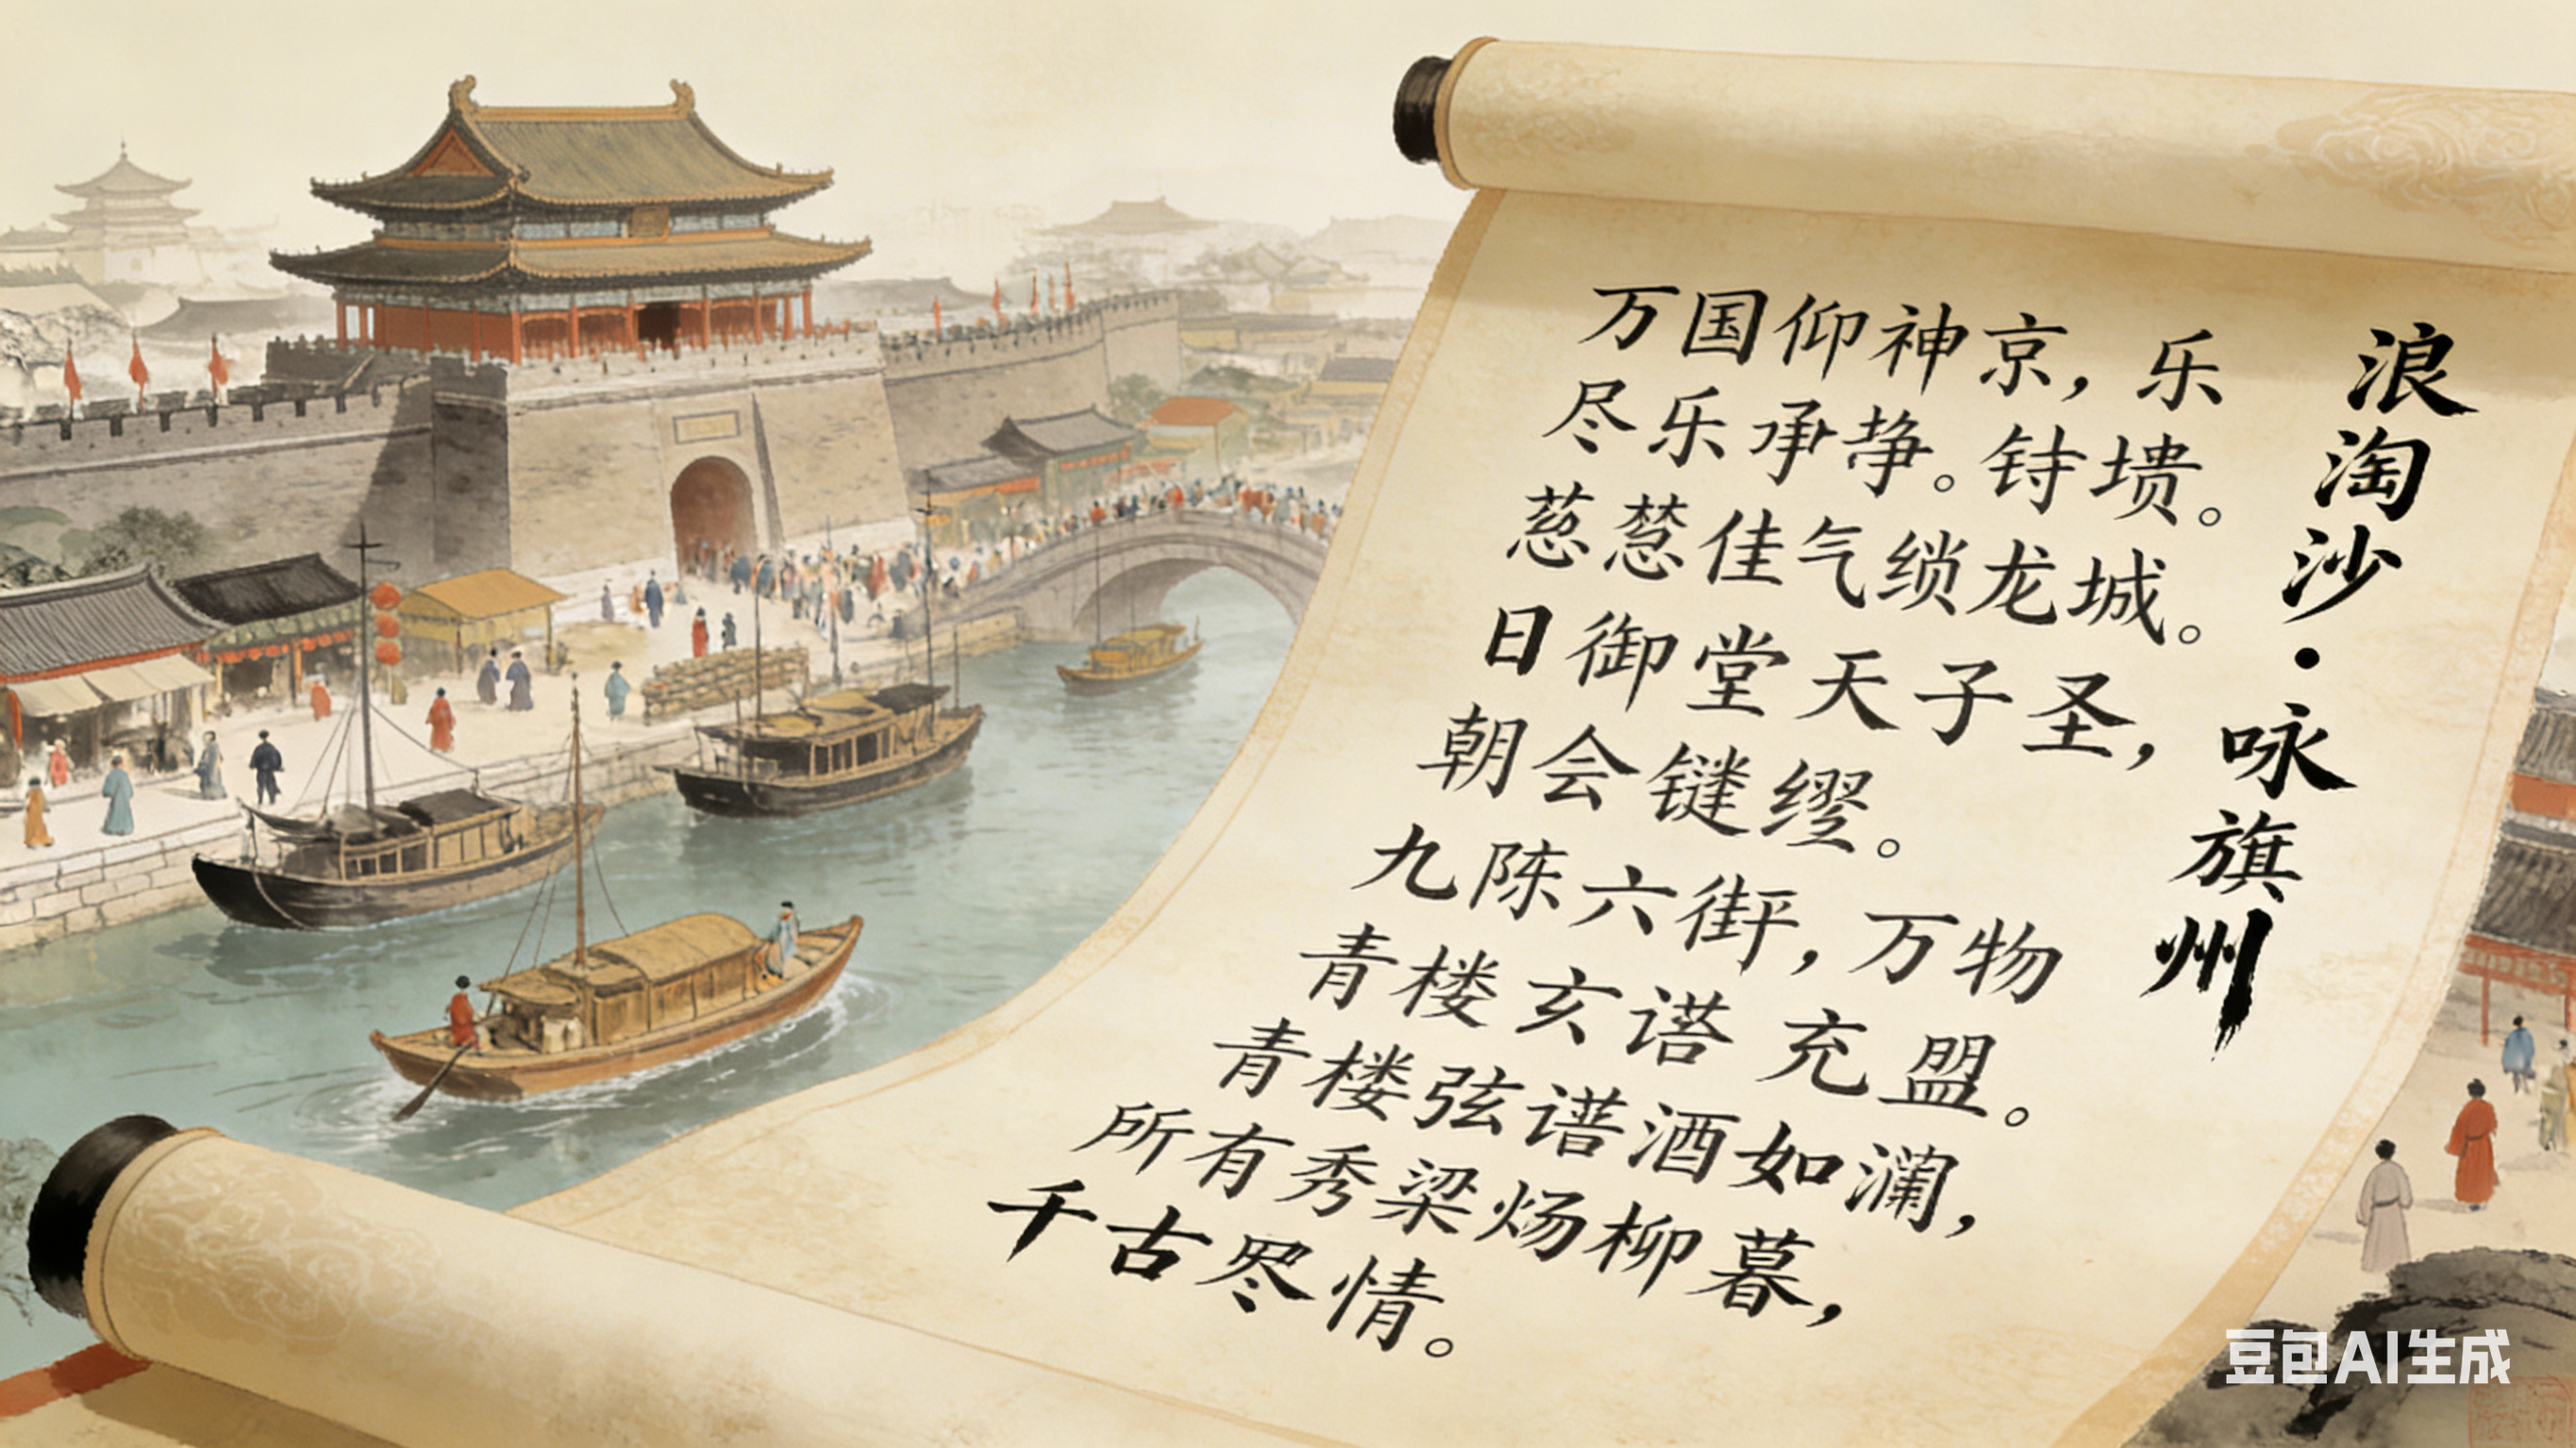 浪淘沙·咏旗州
万国仰神京，乐
尽乐承。
葱葱佳气锁龙城。
日御堂天子圣，
朝会键缪。
九陈六，万物
青楼玄充盟。
青楼弦谱酒如澜，
所有秀梁炀柳暮，
千古情。
豆包AI生成